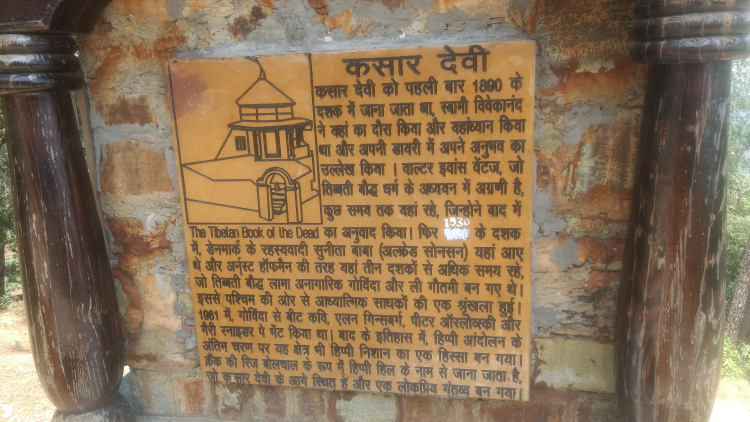 कसार देवी
कसार देवी को पहली बार 1890 के
दशक में जाना जाता था, स्वामी विवेकानंद
ने वहां का दौरा किया और यहांध्यान किया
था और अपनी डायरी में अपने अनुभव का
उल्लेख किया । वाल्टर इवांस वेंटज, जो
तिब्बती बौद्ध धर्म के अध्ययन में अग्रणी है,
कुछ समय तक यहां रहे, जिन्होने बाद में
The Tibetan Book of the Dead का अनुवाद किया। फिर 1930 के दशक
में, डेनमार्क के रहस्यवादी सुनीता बाबा (अल्फ्रेड सोनसन) यहां आए
थे और अर्नस्ट हॉफमैन की तरह यहां तीन दशकों से अधिक समय रहे,
जो तिब्बती बौद्ध लामा अनागारिक गोविंदा और ली गौतमी बन गए थे।
इससे पश्चिम की ओर से आध्यात्मिक साधकों की एक श्रृंखला हुई।
1961 में, गोविंदा से बीट कवि, एलन गिन्सबर्ग, पीटर ऑरलोव्स्की और
गैरी स्नाइडर पे भेंट किया था। बाद के इतिहास में, हिप्पी आंदोलन के
अंतिम चरण पर यह क्षेत्र भी हिप्पी निशान का एक हिस्सा बन गया।
क्रैंक की रिज बोलचाल के रूप में हिप्पी हिल के नाम से जाना जाता है,
जो कसार देवी के आगे स्थित है और एक लोकप्रिय गंतव्य बन गया।